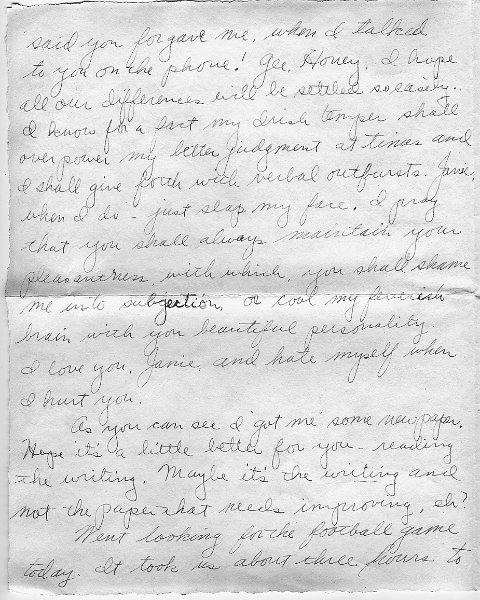 said you forgave me, when I talked
to you on the phone! Gee, Honey, I hope
all our differences will be settled so easily.
I know for a fact my Irish temper shall
over power my better judgment at times and
I shall give forth with verbal outbursts. Janie,
when I do - just slap my face. I pray
that you shall always maintain your
pleasantness, with which, you shall shame
me into subjection, or cool my feverish
brain with you beautiful personality.
I love you, Janie, and hate myself when
I hurt you.
As you can see I got me some new paper.
Hope it's a little better for you - reading
the writing. Maybe it's the writing and
not the paper that needs improving, eh?
Went looking for the football game
today. It took us about three hours to